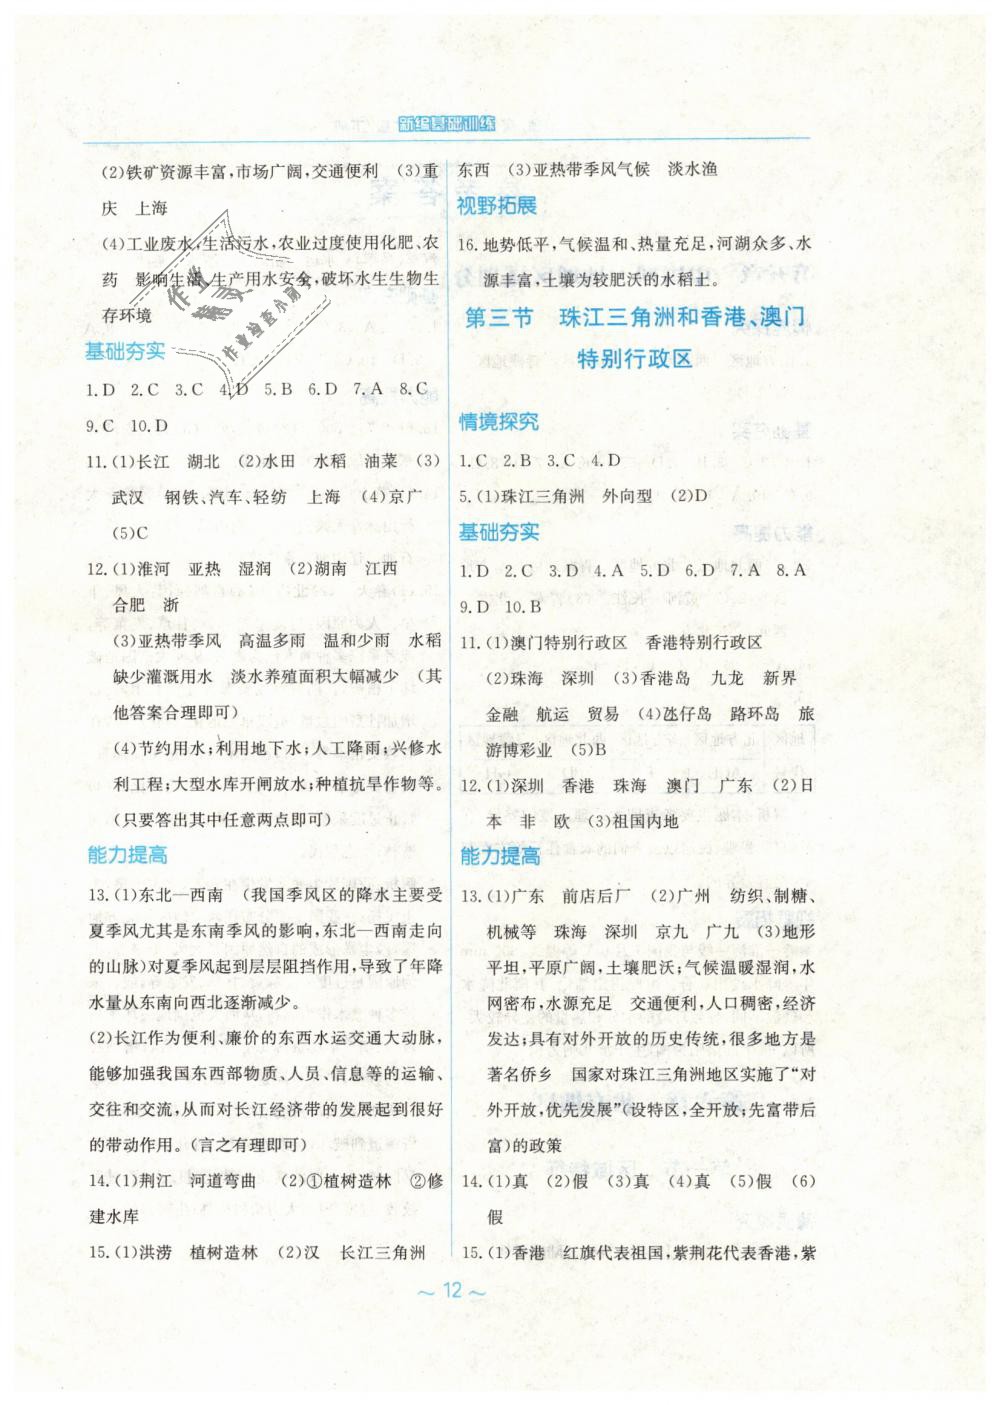 新编基础训练
(2)铁矿资源丰富,市场广阔,交通便利 (3)重
庆 上海
(4)工业废水,生活污水,农业过度使用化肥、农
药 影响生活、生产用水安全,破坏水生生物生
存环境
基础夯实
1.D 2.C 3.C 4.D 5.B 6.D 7.A 8.C
9.C 10.D
11.(1)长江 湖北 (2)水田 水稻 油菜 (3)
武汉 钢铁、汽车、轻纺 上海 (4)京广
(5)C
12.(1)淮河 亚热 湿润 (2)湖南 江西
合肥 浙
(3)亚热带季风 高温多雨 温和少雨 水稻
缺少灌溉用水 淡水养殖面积大幅减少 (其
他答案合理即可)
(4)节约用水;利用地下水;人工降雨;兴修水
利工程;大型水库开闸放水;种植抗旱作物等。
(只要答出其中任意两点即可)
能力提高
13.(1)东北—西南 (我国季风区的降水主要受
夏季风尤其是东南季风的影响,东北—西南走向
的山脉)对夏季风起到层层阻挡作用,导致了年降
水量从东南向西北逐渐减少。
(2)长江作为便利、廉价的东西水运交通大动脉,
能够加强我国东西部物质、人员、信息等的运输、
交往和交流,从而对长江经济带的发展起到很好
的带动作用。(言之有理即可)
14.(1)荆江 河道弯曲 (2)①植树造林 ②修
建水库
15.(1)洪涝 植树造林 (2)汉 长江三角洲
东西 (3)亚热带季风气候 淡水渔
视野拓展
16.地势低平,气候温和、热量充足,河湖众多、水
源丰富,土壤为较肥沃的水稻土。
第三节 珠江三角洲和香港、澳门
特别行政区
情境探究
1.C 2.B 3.C 4.D
5.(1)珠江三角洲 外向型 (2)D
基础夯实
1.D 2.C 3.D 4.A 5.D 6.D 7.A 8.A
9.D 10.B
11.(1)澳门特别行政区 香港特别行政区
(2)珠海 深圳 (3)香港岛 九龙 新界
金融 航运 贸易 (4)氹仔岛 路环岛 旅
游博彩业 (5)B
12.(1)深圳 香港 珠海 澳门 广东 (2)日
本 非 欧 (3)祖国内地
能力提高
13.(1)广东 前店后厂 (2)广州 纺织、制糖、
机械等 珠海 深圳 京九 广九 (3)地形
平坦,平原广阔,土壤肥沃;气候温暖湿润,水
网密布,水源充足 交通便利,人口稠密,经济
发达;具有对外开放的历史传统,很多地方是
著名侨乡 国家对珠江三角洲地区实施了“对
外开放,优先发展”(设特区,全开放;先富带后
富)的政策
14.(1)真 (2)假 (3)真 (4)真 (5)假 (6)
假
15.(1)香港 红旗代表祖国,紫荆花代表香港,紫
～ 12 ～
作业
精灵
作业检查小助手